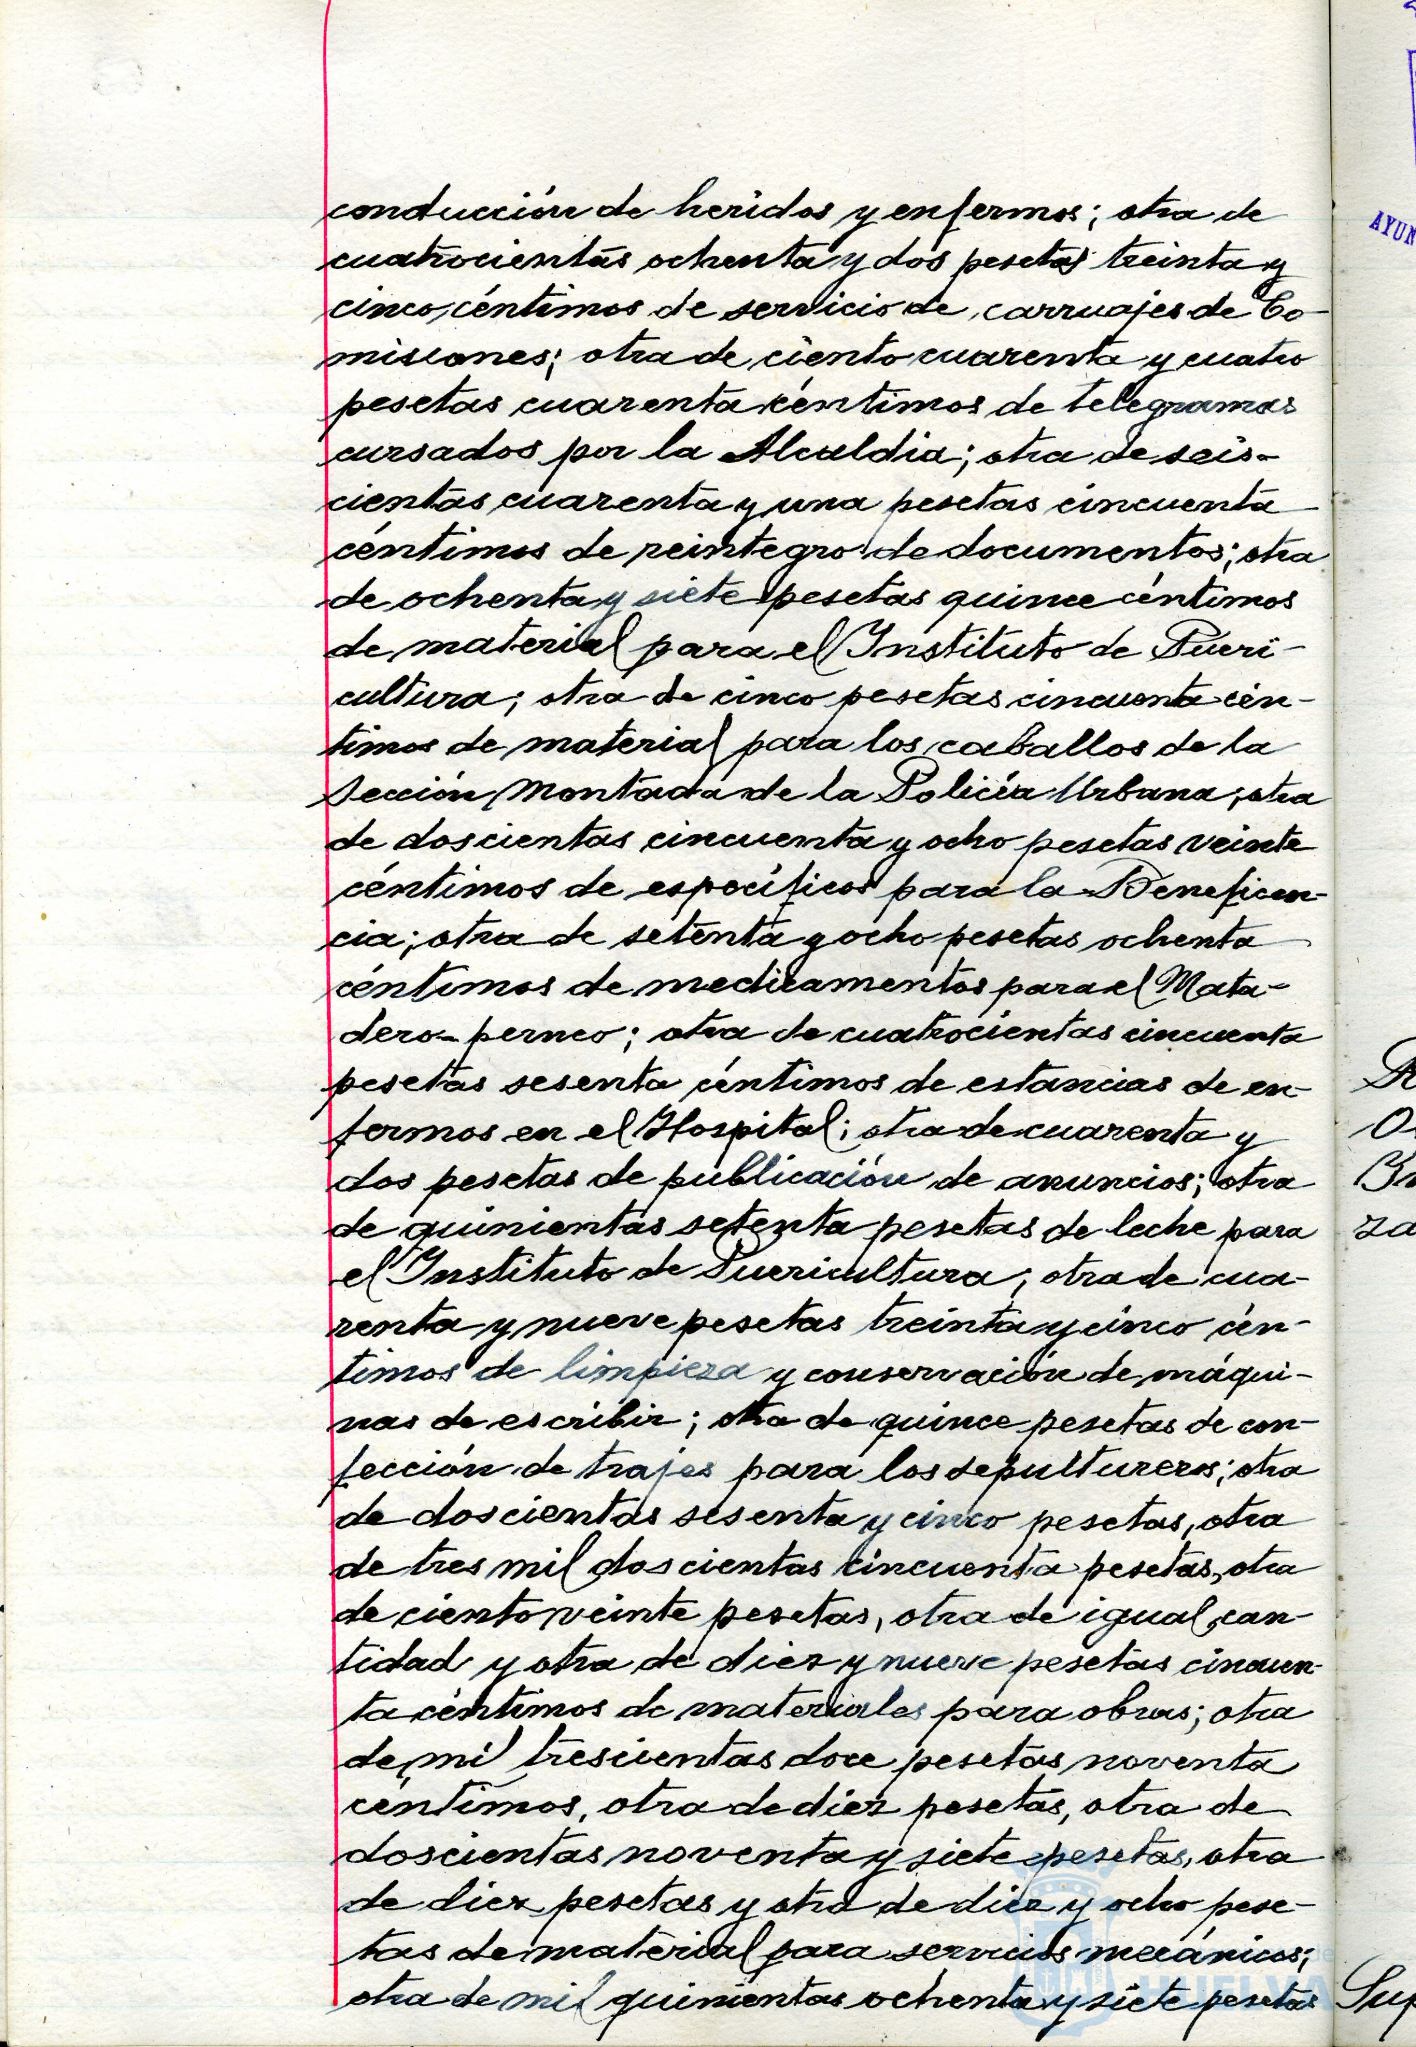 conducción de heridos y enfermos; otra de
cuatrocientas ochenta y dos pesetas treinta y
cinco céntimos de servicio de carruajes de Co-
misiones; otra de ciento cuarenta y cuatro
pesetas cuarenta céntimos de telegramas
cursados por la Alcaldia; otra de seis-
cientas cuarenta y una pesetas cincuenta
céntimos de reintegro de documentos; otra
de ochenta y siete pesetas quince céntimos
de material para el Instituto de Pueri-
cultura; otra de cinco pesetas cincuenta cén-
timos de material para los caballos de la
Sección Montada de la Policía Urbana; otra
de doscientas cincuenta y ocho pesetas veinte
céntimos de específicos para la Beneficen-
cia; otra de setenta y ocho pesetas ochenta
céntimos de medicamentos para el Mata-
dero-perneo; otra de cuatrocientas cincuenta
pesetas sesenta céntimos de estancias de en-
fermos en el Hospital; otra de cuarenta y
dos pesetas de publicación de anuncios; otra
de quinientas setenta pesetas de leche para
el Instituto de Puericultura; otra de cua-
renta y nueve pesetas treinta y cinco cén-
timos de limpieza y conservación de máqui-
nas de escribir; otra de quince pesetas de con-
fección de trajes para los sepultureros; otra
de doscientas sesenta y cinco pesetas, otra
de tres mil doscientas cincuenta pesetas, otra
de ciento veinte pesetas, otra de igual can-
tidad y otra de diez y nueve pesetas cincuen-
ta céntimos de materiales para obras; otra
de mil trescientas doce pesetas noventa
céntimos, otra de diez pesetas, otra de
doscientas noventa y siete pesetas, otra
de diez pesetas y otra de diez y ocho pese-
tas de material para servicios mecánicos;
otra de mil quinientas ochenta y siete pesetas
HUELVA
AYUN